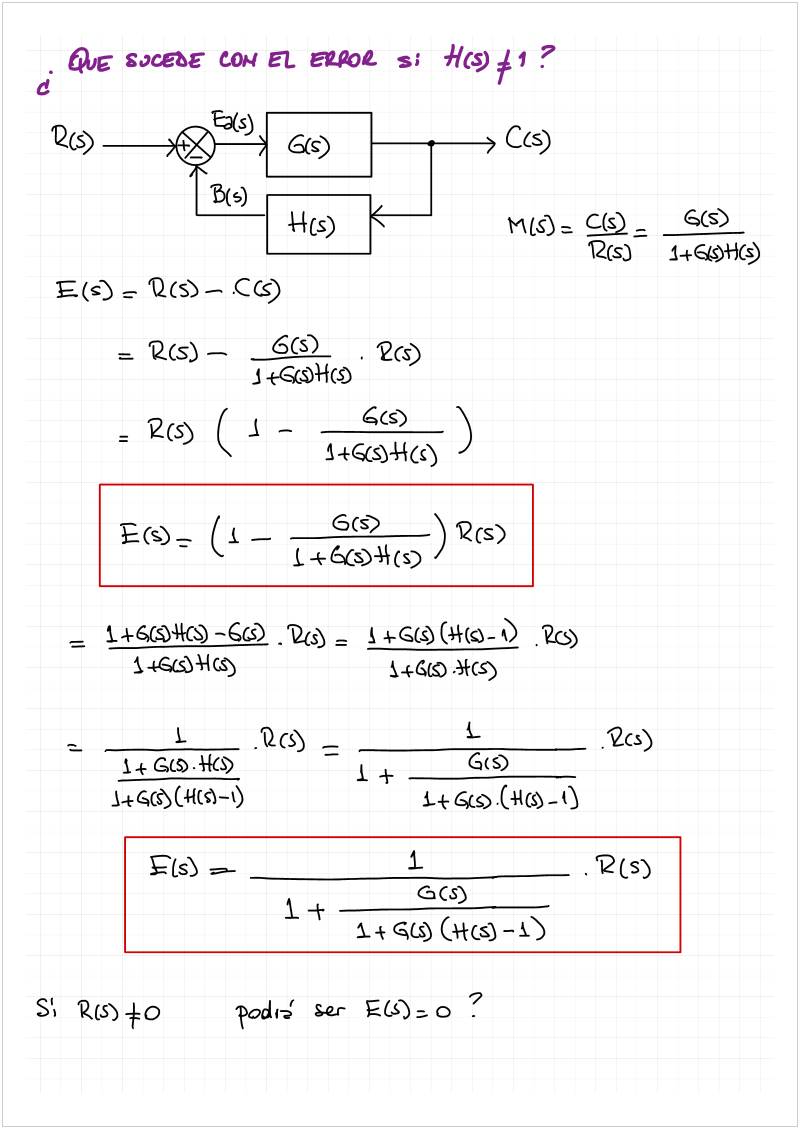 ¿ QUE SUCEDE CON EL ERROR Si H(s) ≠ 1 ?
R(s) + − Ea(s) G(s) C(s)
B(s) H(s)
M(s) = C(s)/R(s) = G(s)/(1+G(s)H(s))
E(s) = R(s) − C(s)
= R(s) − G(s)/(1+G(s)H(s)) · R(s)
= R(s) ( 1 − G(s)/(1+G(s)H(s)) )
E(s) = ( 1 − G(s)/(1+G(s)H(s)) ) R(s)
= (1+G(s)H(s)−G(s))/(1+G(s)H(s)) · R(s) = (1+G(s)(H(s)−1))/(1+G(s)·H(s)) · R(s)
= 1/((1+G(s)·H(s))/(1+G(s)(H(s)−1))) · R(s) = 1/(1 + G(s)/(1+G(s)·(H(s)−1))) · R(s)
E(s) = 1/(1 + G(s)/(1+G(s)(H(s)−1))) · R(s)
Si R(s) ≠ 0 podrá ser E(s) = 0 ?